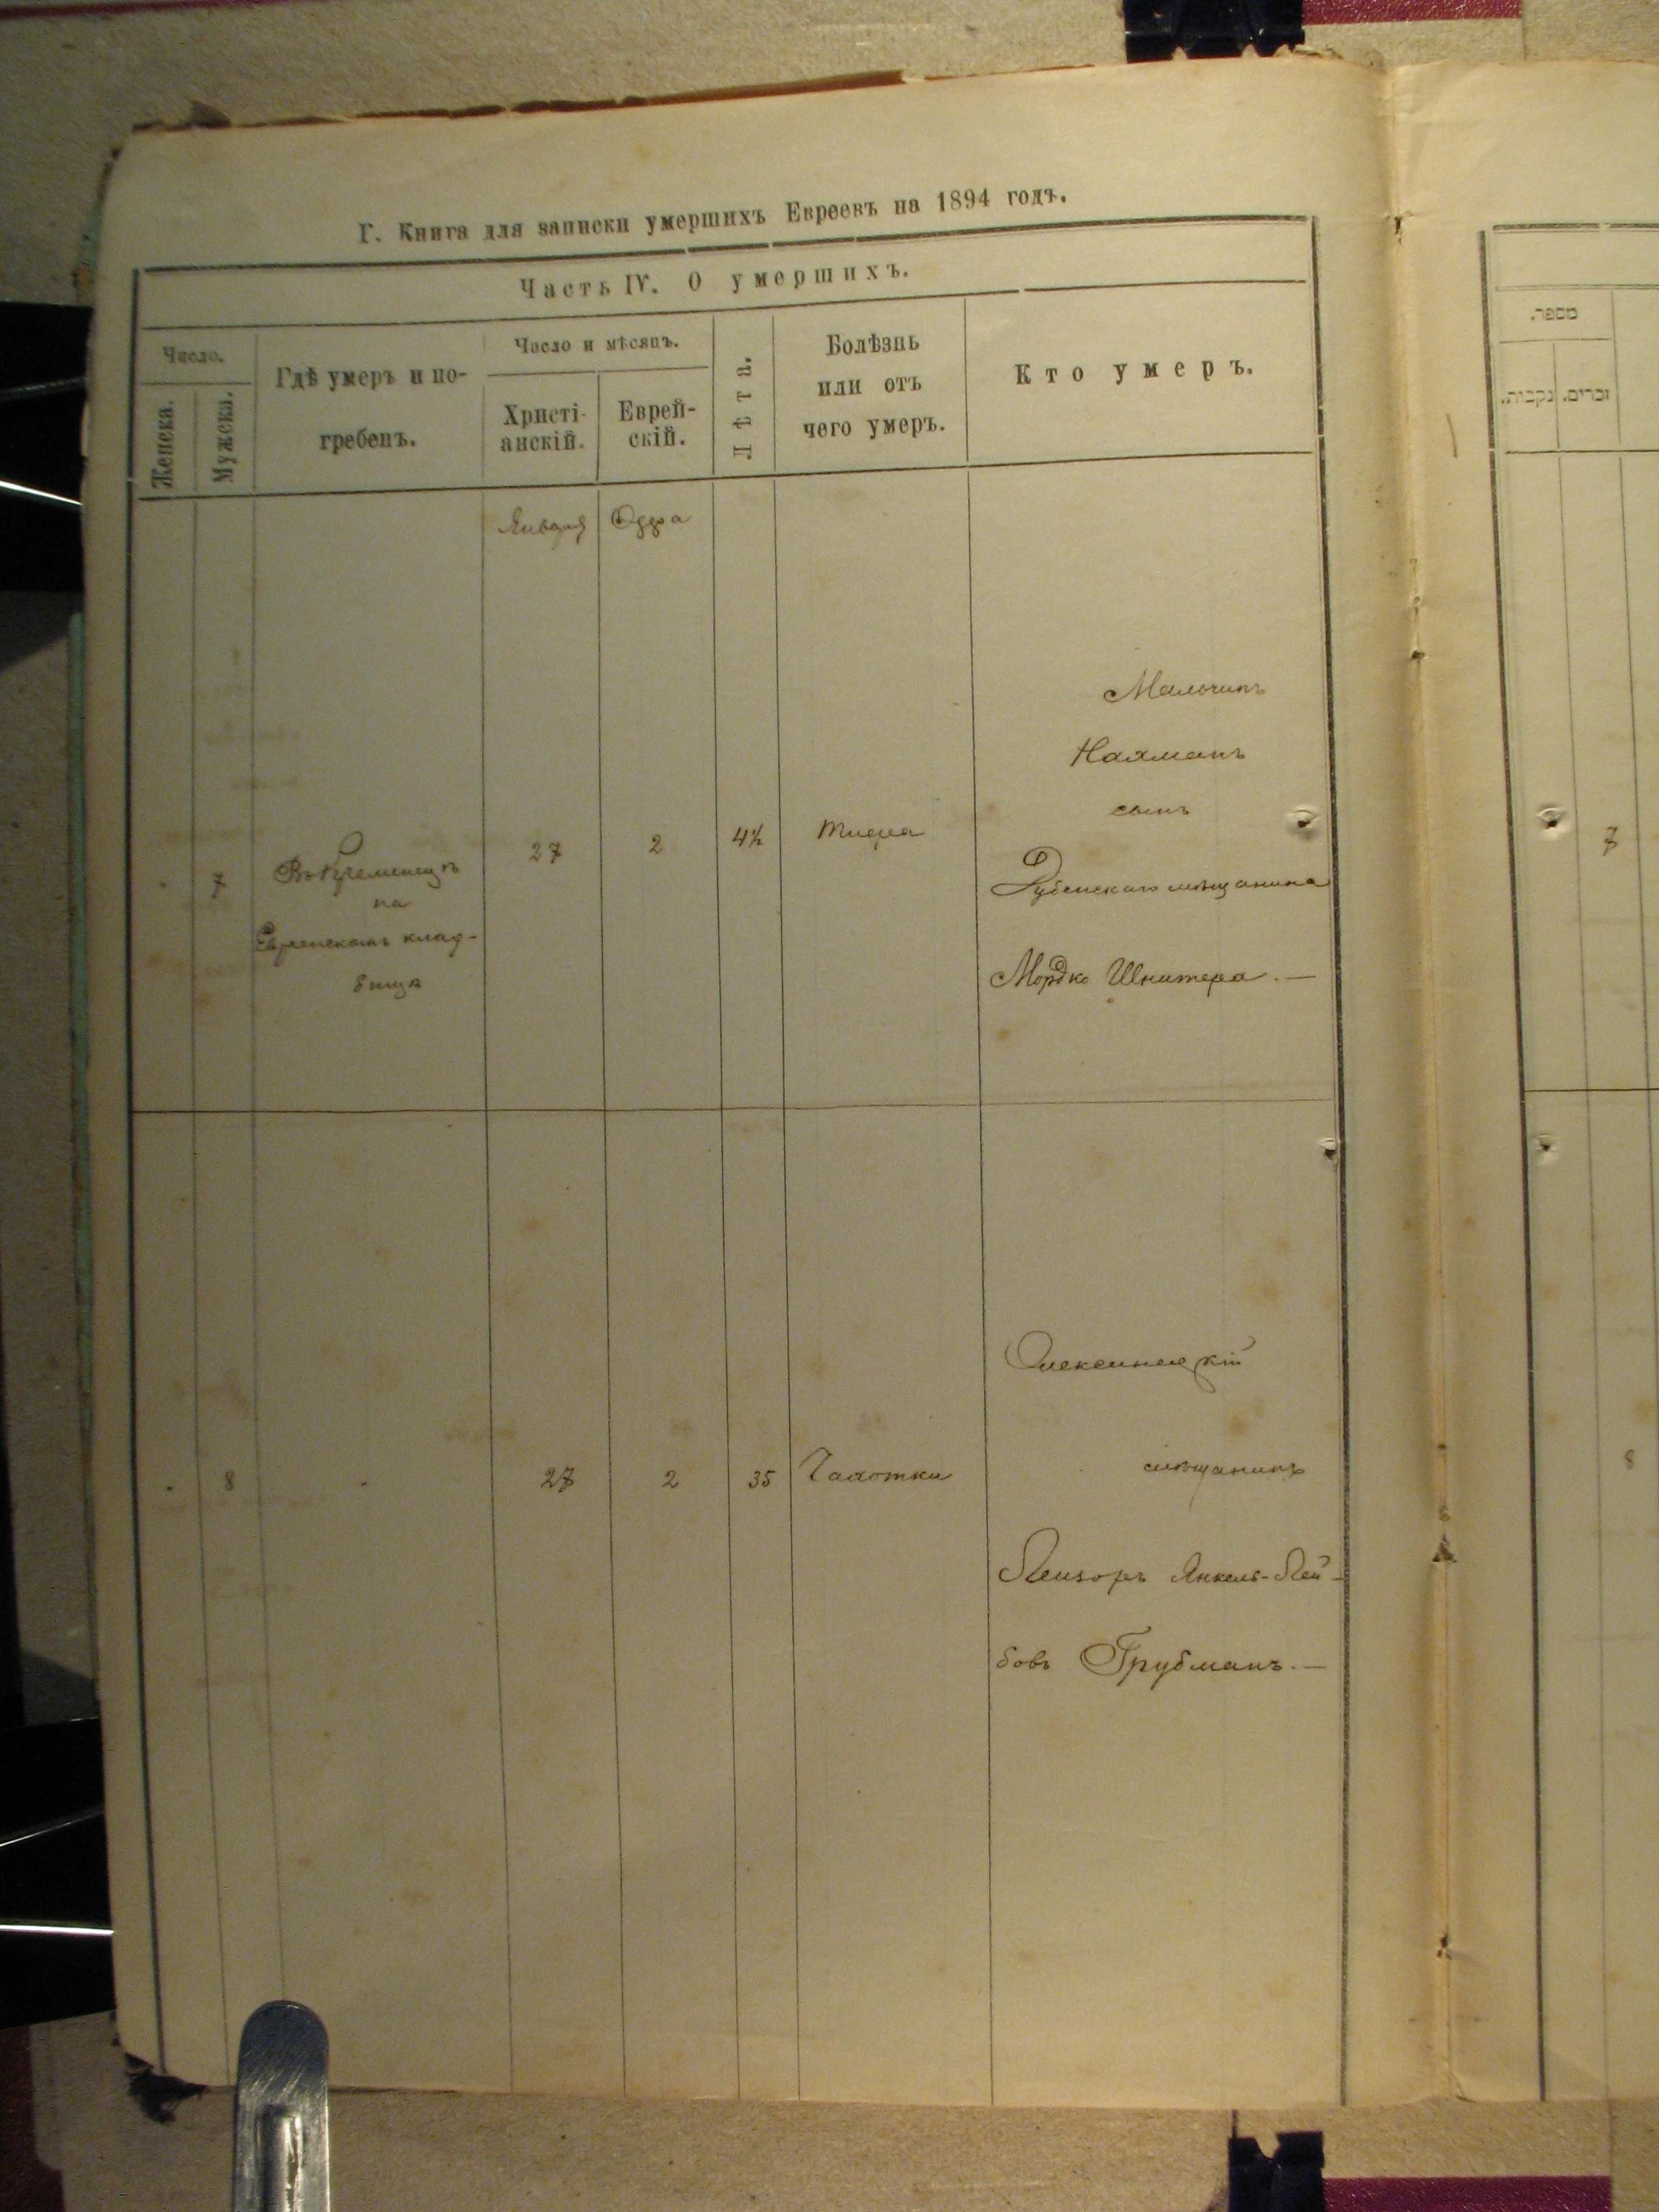 Г. Книга для записки умершихъ Евреевъ на 1894 годъ.
Часть IV. О умершихъ.
Число.
Женска.
Мужска.
Гдѣ умеръ и по-
гребенъ.
Число и мѣсяцъ.
Христі-
анскій.
Еврей-
скій.
Лѣта.
Болѣзнь
или отъ
чего умеръ.
Кто умеръ.
Января
Одра
7
Въ Кременцѣ
на
Еврейскомъ клад-
бищѣ
27
2
4½
Тифа
Мальчикъ
Нахманъ
сынъ
Дубенскаго мѣщанина
Мордко Шнитера. —
8
27
2
35
Чахотки
Олексинецкій
мѣщанинъ
Лейзоръ Янкель-Лей-
бовъ Грубманъ. —
מספר.
נקבות.
זכרים.
7
8